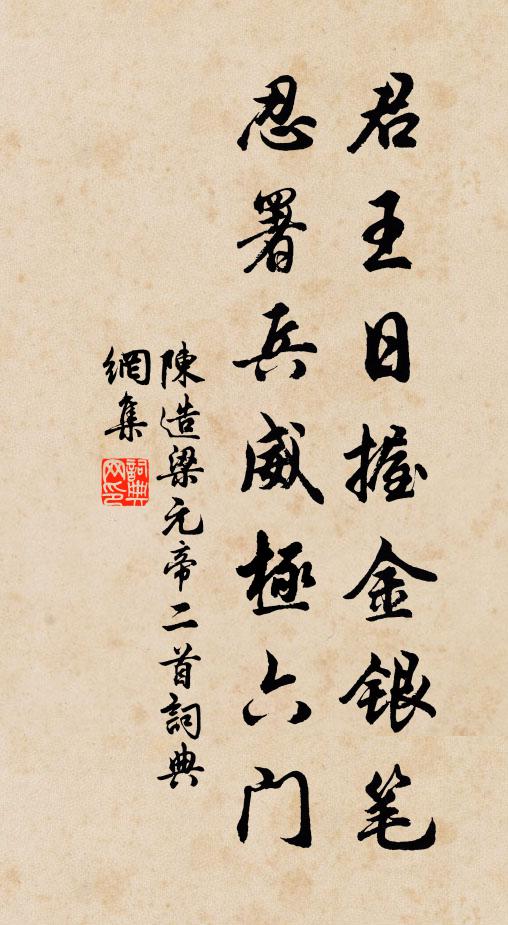 君王日握金银笔
忍署兵威極六门
陳造梁元帝二首詞典
網集
詞典网印